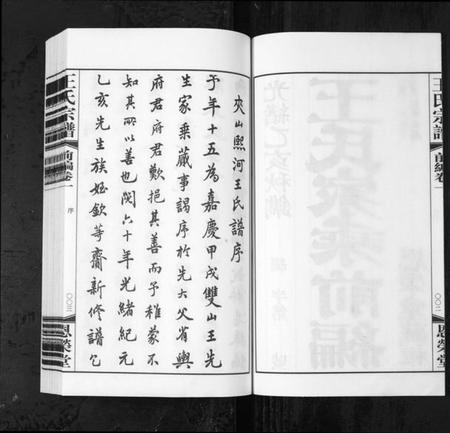 夾山熙河王氏譜序
予年十五為嘉慶甲戌雙山王先
生家乘蕆事謁序於先大父省與
府君府君歎挹其善而予稚蒙不
知其所以善也閱六十年光緒紀元
乙亥先生族姪欽等齎新修譜乞
王氏宗譜
前編卷一
序
恩榮堂
王氏宗譜
前編卷一
恩榮堂